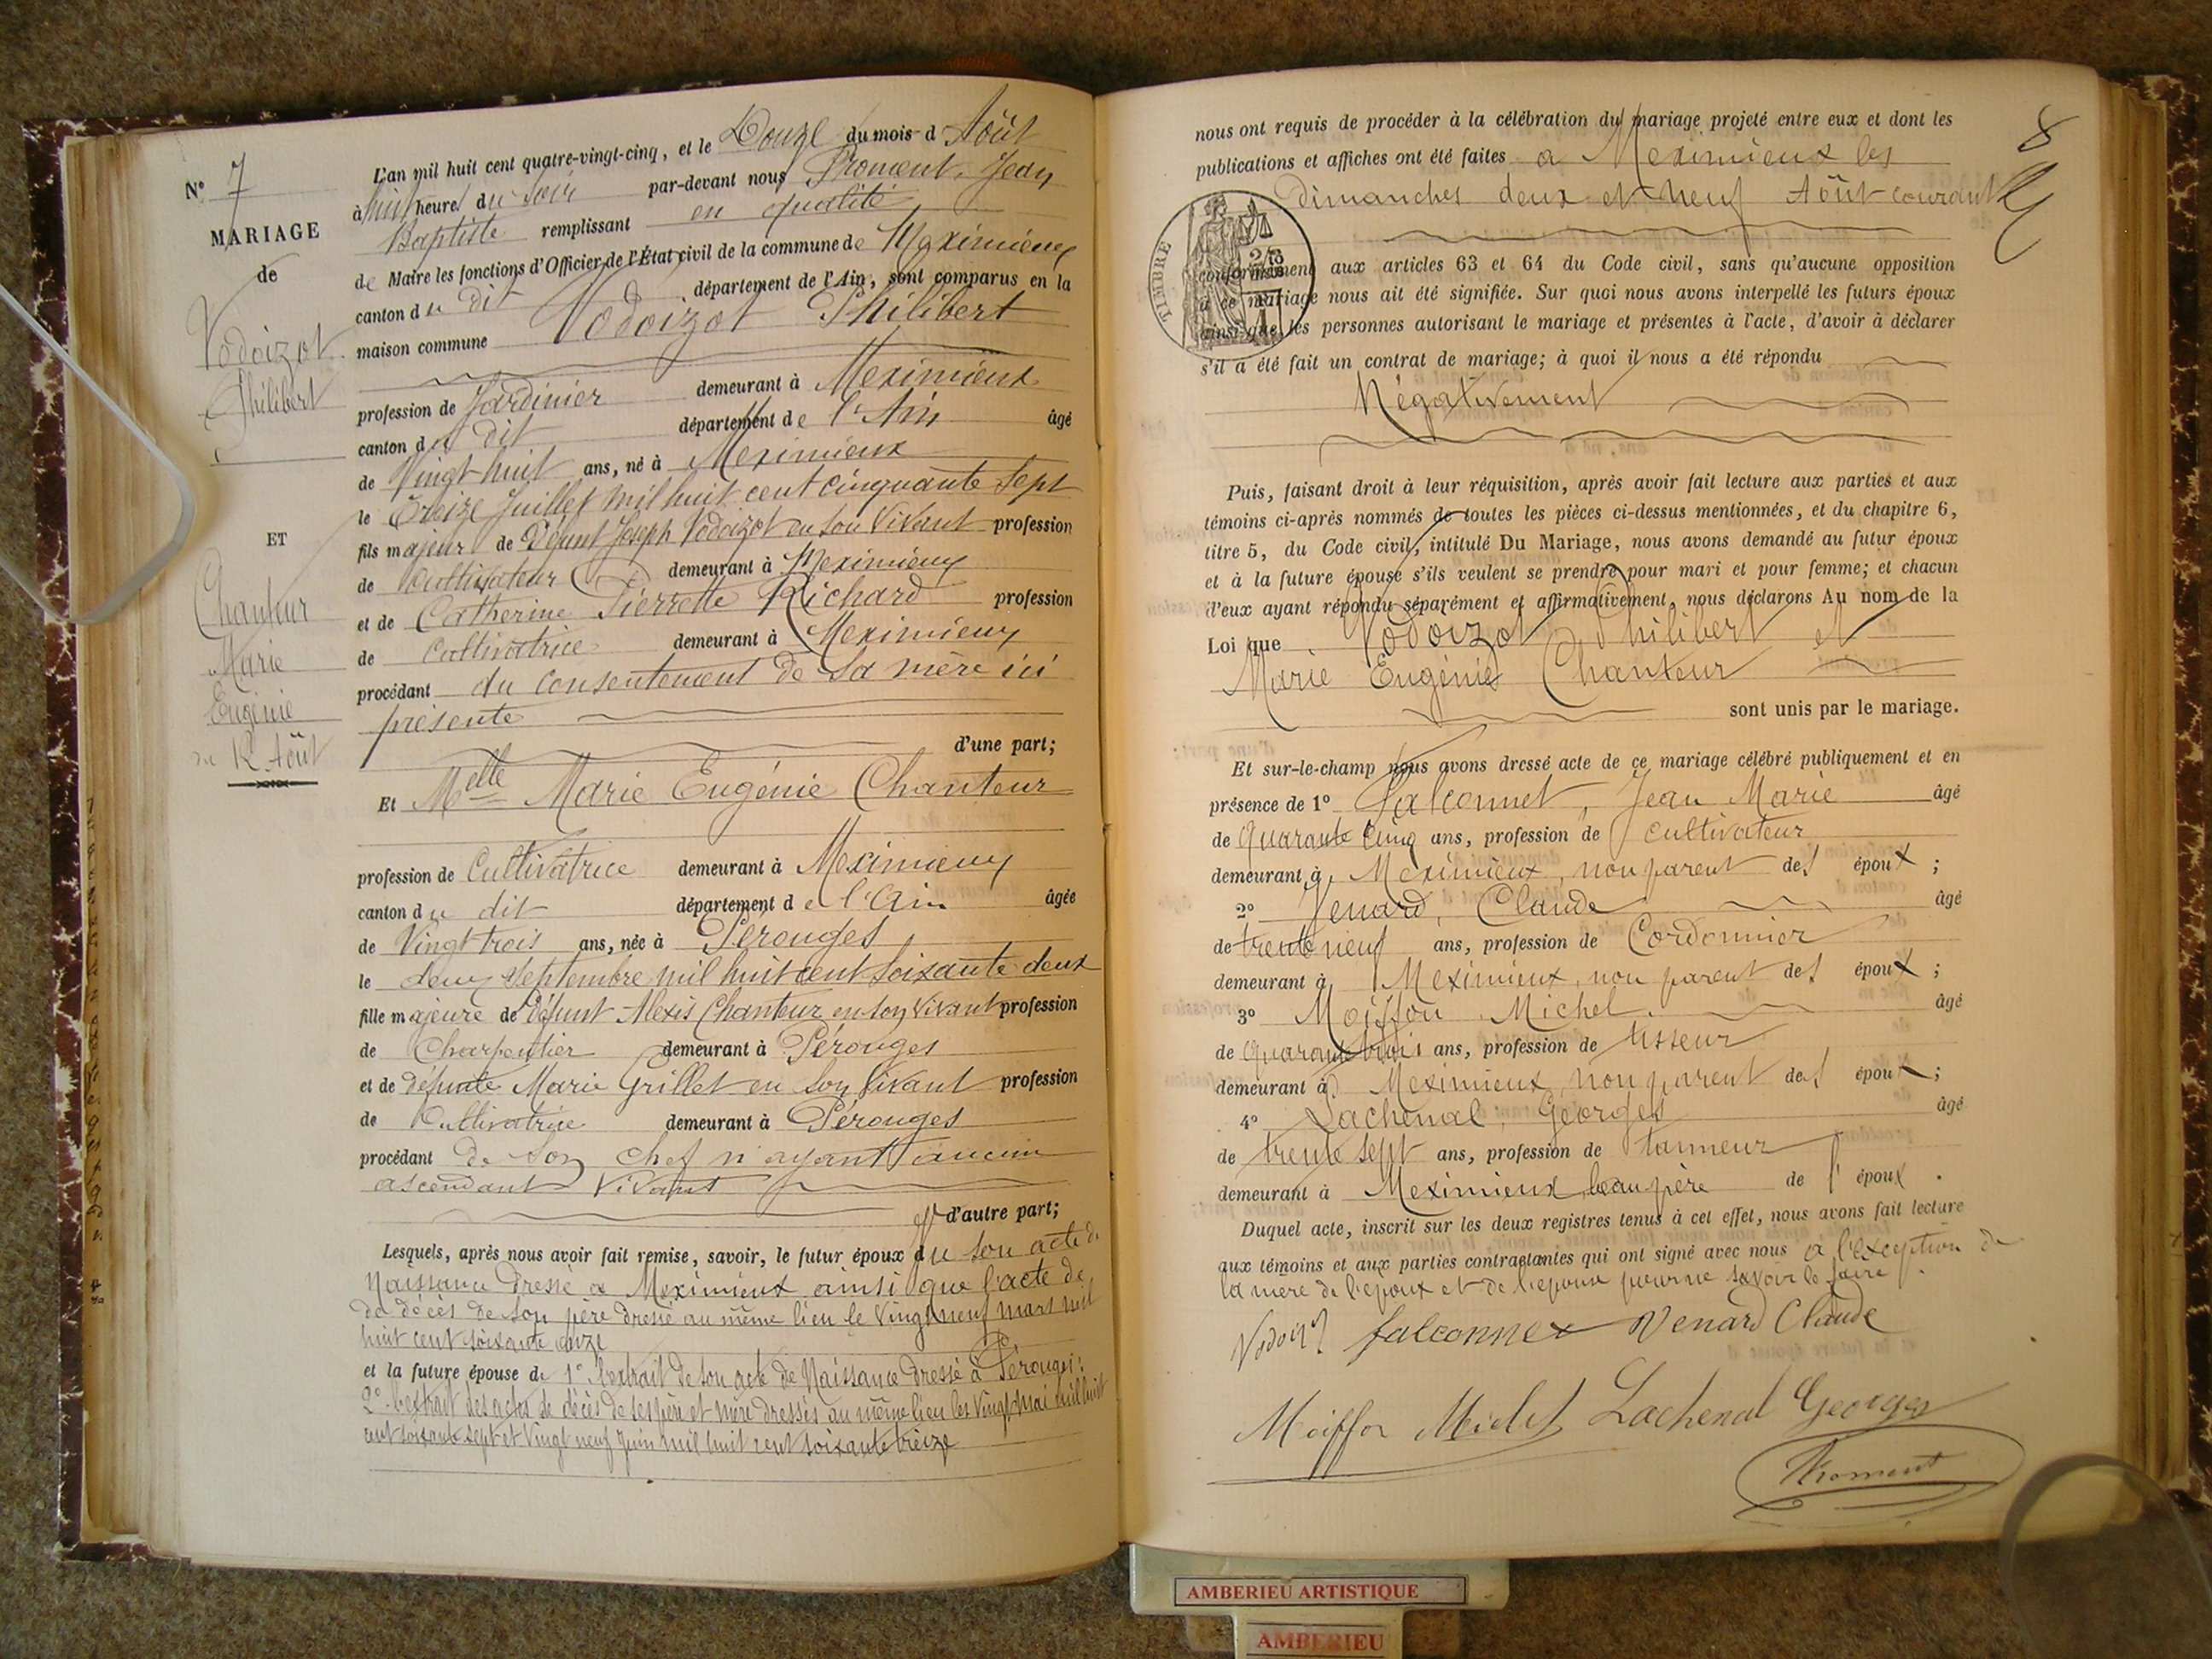 N° 7
MARIAGE
de
Vodoizot
Philibert
ET
Chanteur
Marie
Eugénie
du 12 Août
L'an mil huit cent quatre-vingt-cinq, et le Douze du mois d'Août
à huit heures du soir par-devant nous Froment, Jean
Baptiste remplissant en qualité
de Maire les fonctions d'Officier de l'État civil de la commune de Meximieux
canton du dit département de l'Ain, sont comparus en la
maison commune Vodoizot Philibert
profession de Jardinier demeurant à Meximieux
canton du dit département de l'Ain âgé
de Vingt-huit ans, né à Meximieux
le Treize Juillet mil huit cent cinquante sept
fils majeur de Défunt Joseph Vodoizot en son vivant profession
de Cultivateur demeurant à Meximieux
et de Catherine Pierrette Richard profession
de Cultivatrice demeurant à Meximieux
procédant du consentement de sa mère ici
présente
d'une part;
Et Melle Marie Eugénie Chanteur
profession de Cultivatrice demeurant à Meximieux
canton du dit département de l'Ain âgée
de Vingt trois ans, née à Pérouges
le deux Septembre mil huit cent soixante deux
fille majeure de Défunt Alexis Chanteur en son vivant profession
de Charpentier demeurant à Pérouges
et de défunte Marie Grillet en son vivant profession
de Cultivatrice demeurant à Pérouges
procédant de son chef n'ayant aucun
ascendant vivant
d'autre part;
Lesquels, après nous avoir fait remise, savoir, le futur époux du son acte de
Naissance dressé à Meximieux ainsi que l'acte de
de décès de son père dressé au même lieu le vingt neuf mars mil
huit cent soixante onze
et la future épouse de 1° l'extrait de son acte de Naissance dressé à Pérouges:
2° l'extrait des actes de décès de ses père et mère dressés au même lieu les vingt mai mil huit
cent soixante sept et vingt neuf Juin mil huit cent soixante treize
8
nous ont requis de procéder à la célébration du mariage projeté entre eux et dont les
publications et affiches ont été faites à Meximieux les
dimanches deux et neuf Août courant
TIMBRE
conformément aux articles 63 et 64 du Code civil, sans qu'aucune opposition
à ce mariage nous ait été signifiée. Sur quoi nous avons interpellé les futurs époux
ainsi que les personnes autorisant le mariage et présentes à l'acte, d'avoir à déclarer
s'il a été fait un contrat de mariage; à quoi il nous a été répondu
Négativement
Puis, faisant droit à leur réquisition, après avoir fait lecture aux parties et aux
témoins ci-après nommés de toutes les pièces ci-dessus mentionnées, et du chapitre 6,
titre 5, du Code civil, intitulé Du Mariage, nous avons demandé au futur époux
et à la future épouse s'ils veulent se prendre pour mari et pour femme; et chacun
d'eux ayant répondu séparément et affirmativement, nous déclarons Au nom de la
Loi que Vodoizot Philibert et
Marie Eugénie Chanteur
sont unis par le mariage.
Et sur-le-champ nous avons dressé acte de ce mariage célébré publiquement et en
présence de 1° Falconnet, Jean Marie âgé
de quarante cinq ans, profession de cultivateur
demeurant à Meximieux, non parent des époux;
2° Venard, Claude âgé
de trente neuf ans, profession de Cordonnier
demeurant à Meximieux, non parent des époux;
3° Moiffon Michel âgé
de quarante trois ans, profession de tisseur
demeurant à Meximieux non parent des époux;
4° Lachenal, Georges âgé
de trente sept ans, profession de tanneur
demeurant à Meximieux beau père de l'époux.
Duquel acte, inscrit sur les deux registres tenus à cet effet, nous avons fait lecture
aux témoins et aux parties contractantes qui ont signé avec nous à l'exception de
la mère de l'époux et de l'épouse pour ne savoir le faire.
falconnet Venard Claude
Lachenal Georges
Froment
AMBERIEU ARTISTIQUE
AMBERIEU